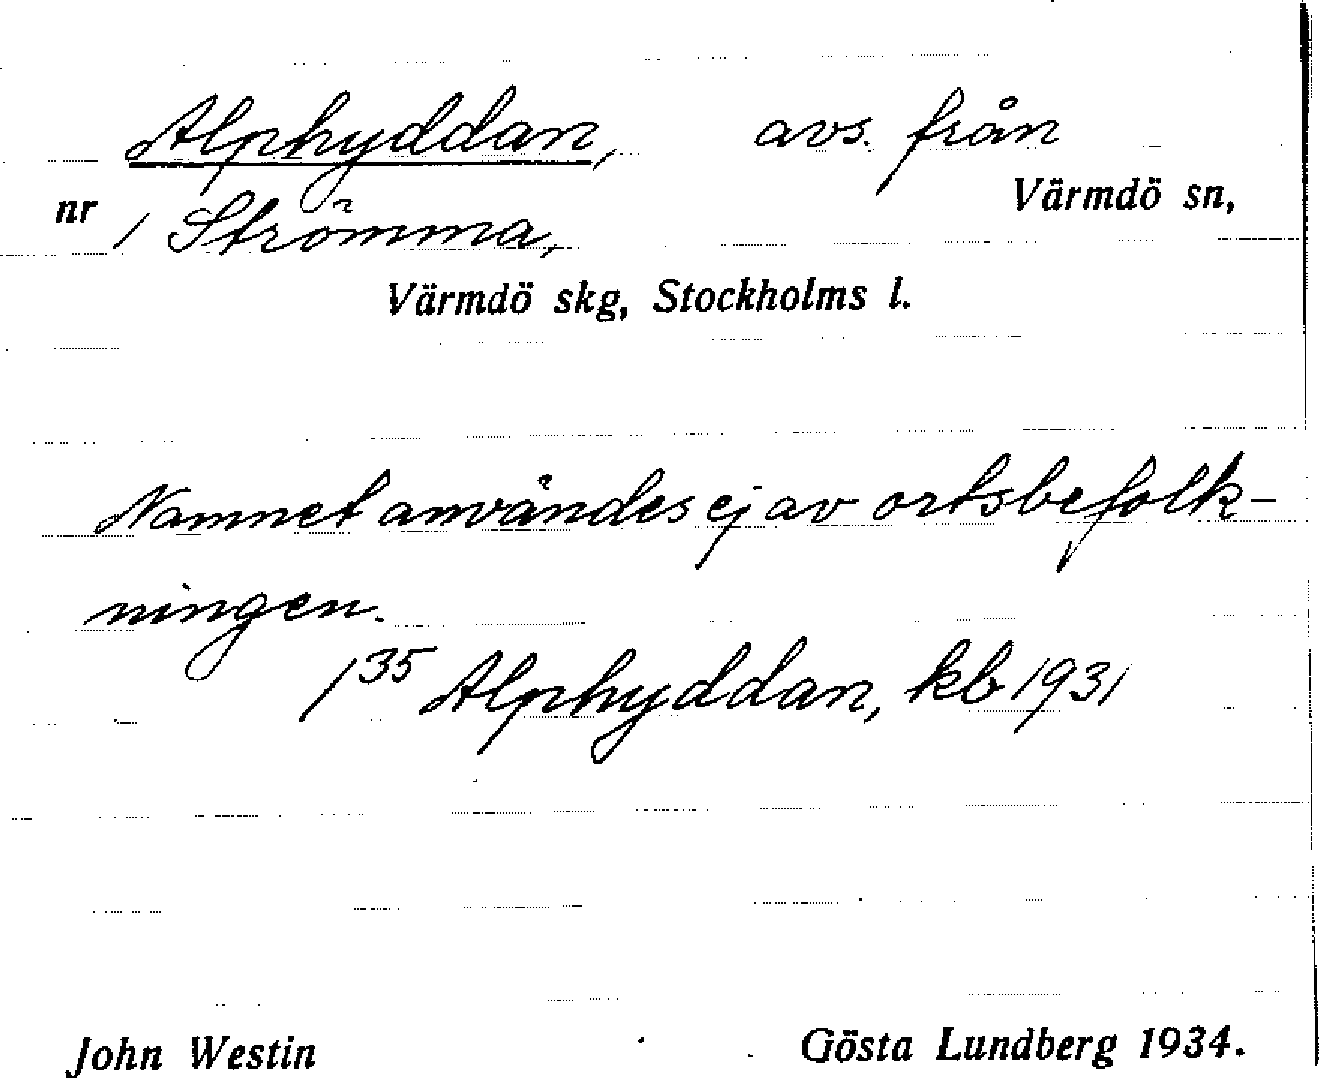 Alphyddan, avs. från
nr 1 Strömma, Värmdö sn,
Värmdö skg, Stockholms l.
Namnet användes ej av ortsbefolk-
ningen.
1 35 Alphyddan, kb 1931
John Westin Gösta Lundberg 1934.